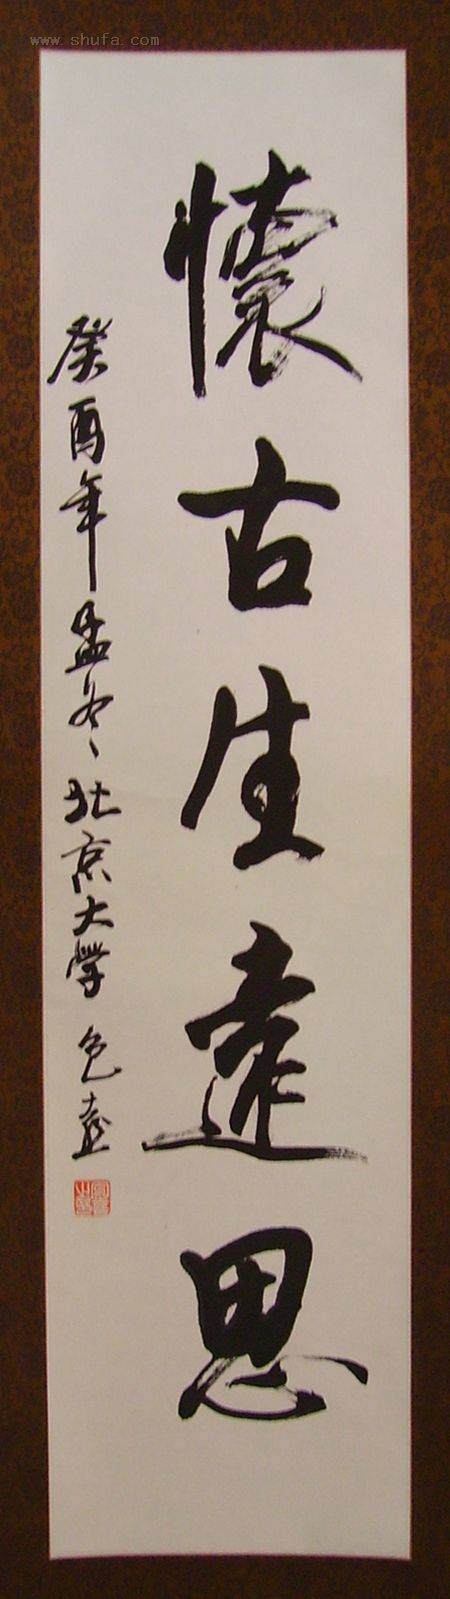 www.shufa.com
懷古生遠思
癸酉年孟冬北京大學